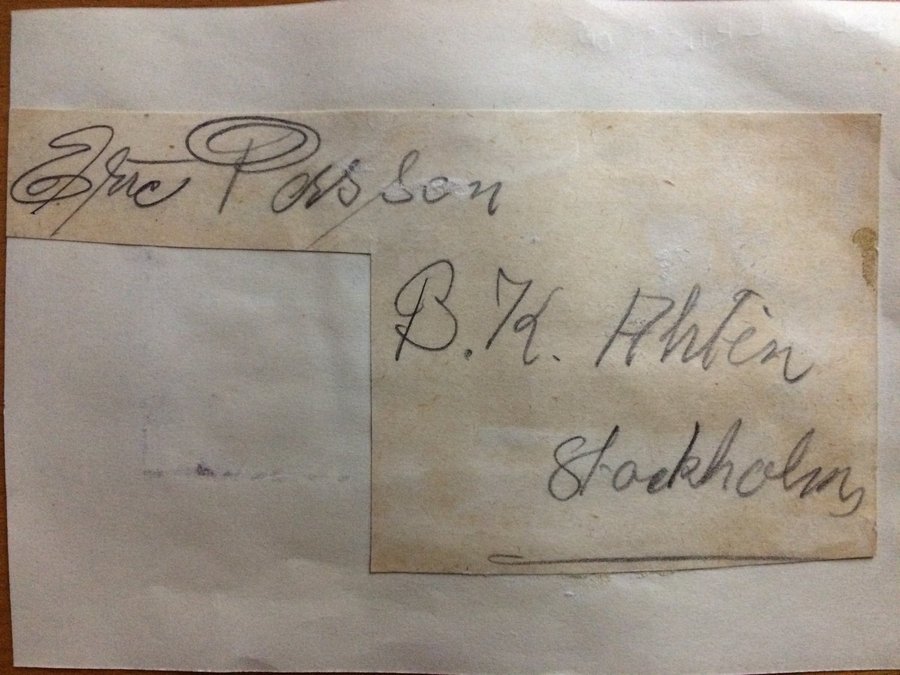 Eric Persson
B. K. Ahlén
Stockholm